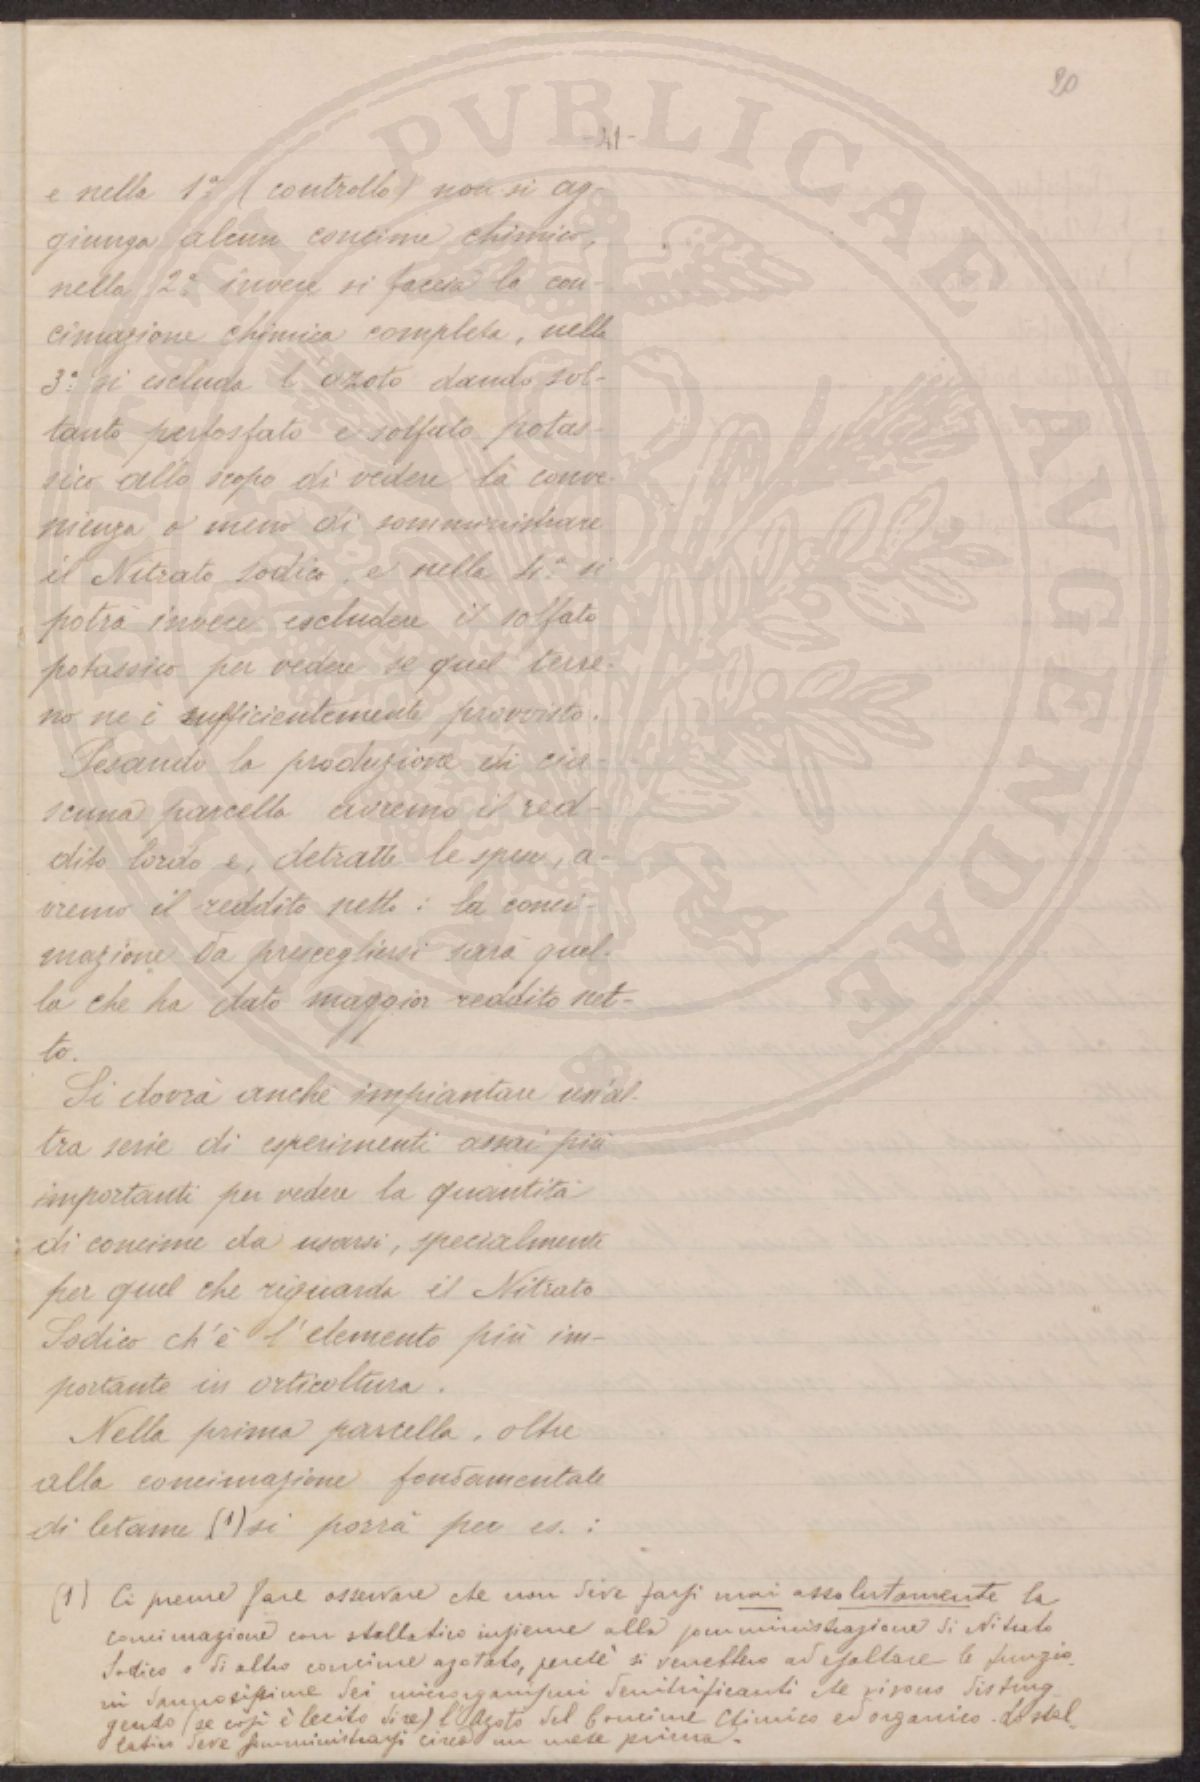 20
-41-
e nella 1ª (controllo) non si ag-
giunga alcun concime chimico,
nella 2ª invece si faccia la con-
cimazione chimica completa, nella
3ª si escluda l'azoto dando sol-
tanto perfosfato e solfato potas-
sico allo scopo di vedere la conve-
nienza o meno di somministrare
il Nitrato sodico, e nella 4ª si
potrà invece escludere il solfato
potassico per vedere se quel terre-
no ne è sufficientemente provvisto.
Pesando la produzione di cia-
scuna parcella avremo il red-
dito lordo e, detratte le spese, a-
vremo il reddito netto: la conci-
mazione da prescegliersi sarà quel-
la che ha dato maggior reddito net-
to.
Si dovrà anche impiantare un'al-
tra serie di esperimenti assai più
importanti per vedere la quantità
di concime da usarsi, specialmente
per quel che riguarda il Nitrato
Sodico ch'è l'elemento più im-
portante in orticoltura.
Nella prima parcella, oltre
alla concimazione fondamentale
di letame (1) si porrà per es.:
(1) Ci preme fare osservare che non deve farsi mai assolutamente la
concimazione con stallatico insieme alla somministrazione di Nitrato
Sodico o di altro concime azotato, perché si verrebbero ad esaltare le funzio-
ni dannosissime dei microrganismi denitrificanti che vivono distrug-
gendo (se così è lecito dire) l'Azoto del Concime Chimico ed organico. Lo stal-
latico deve somministrarsi circa un mese prima.
PVBLICAE AVGENDAE